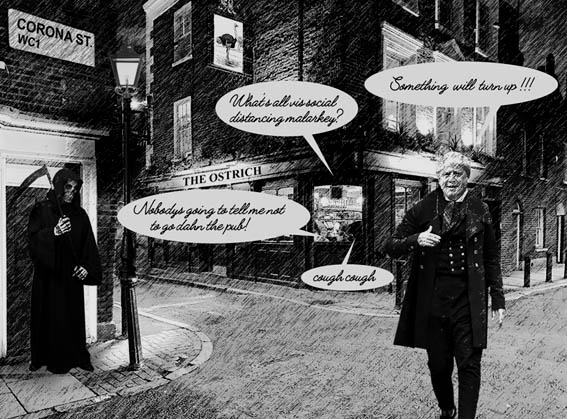 CORONA ST.
WC1
Something will turn up !!!
What's all vis social
distancing malarkey?
THE OSTRICH
Nobodys going to tell me not
to go dahn the pub!
cough cough